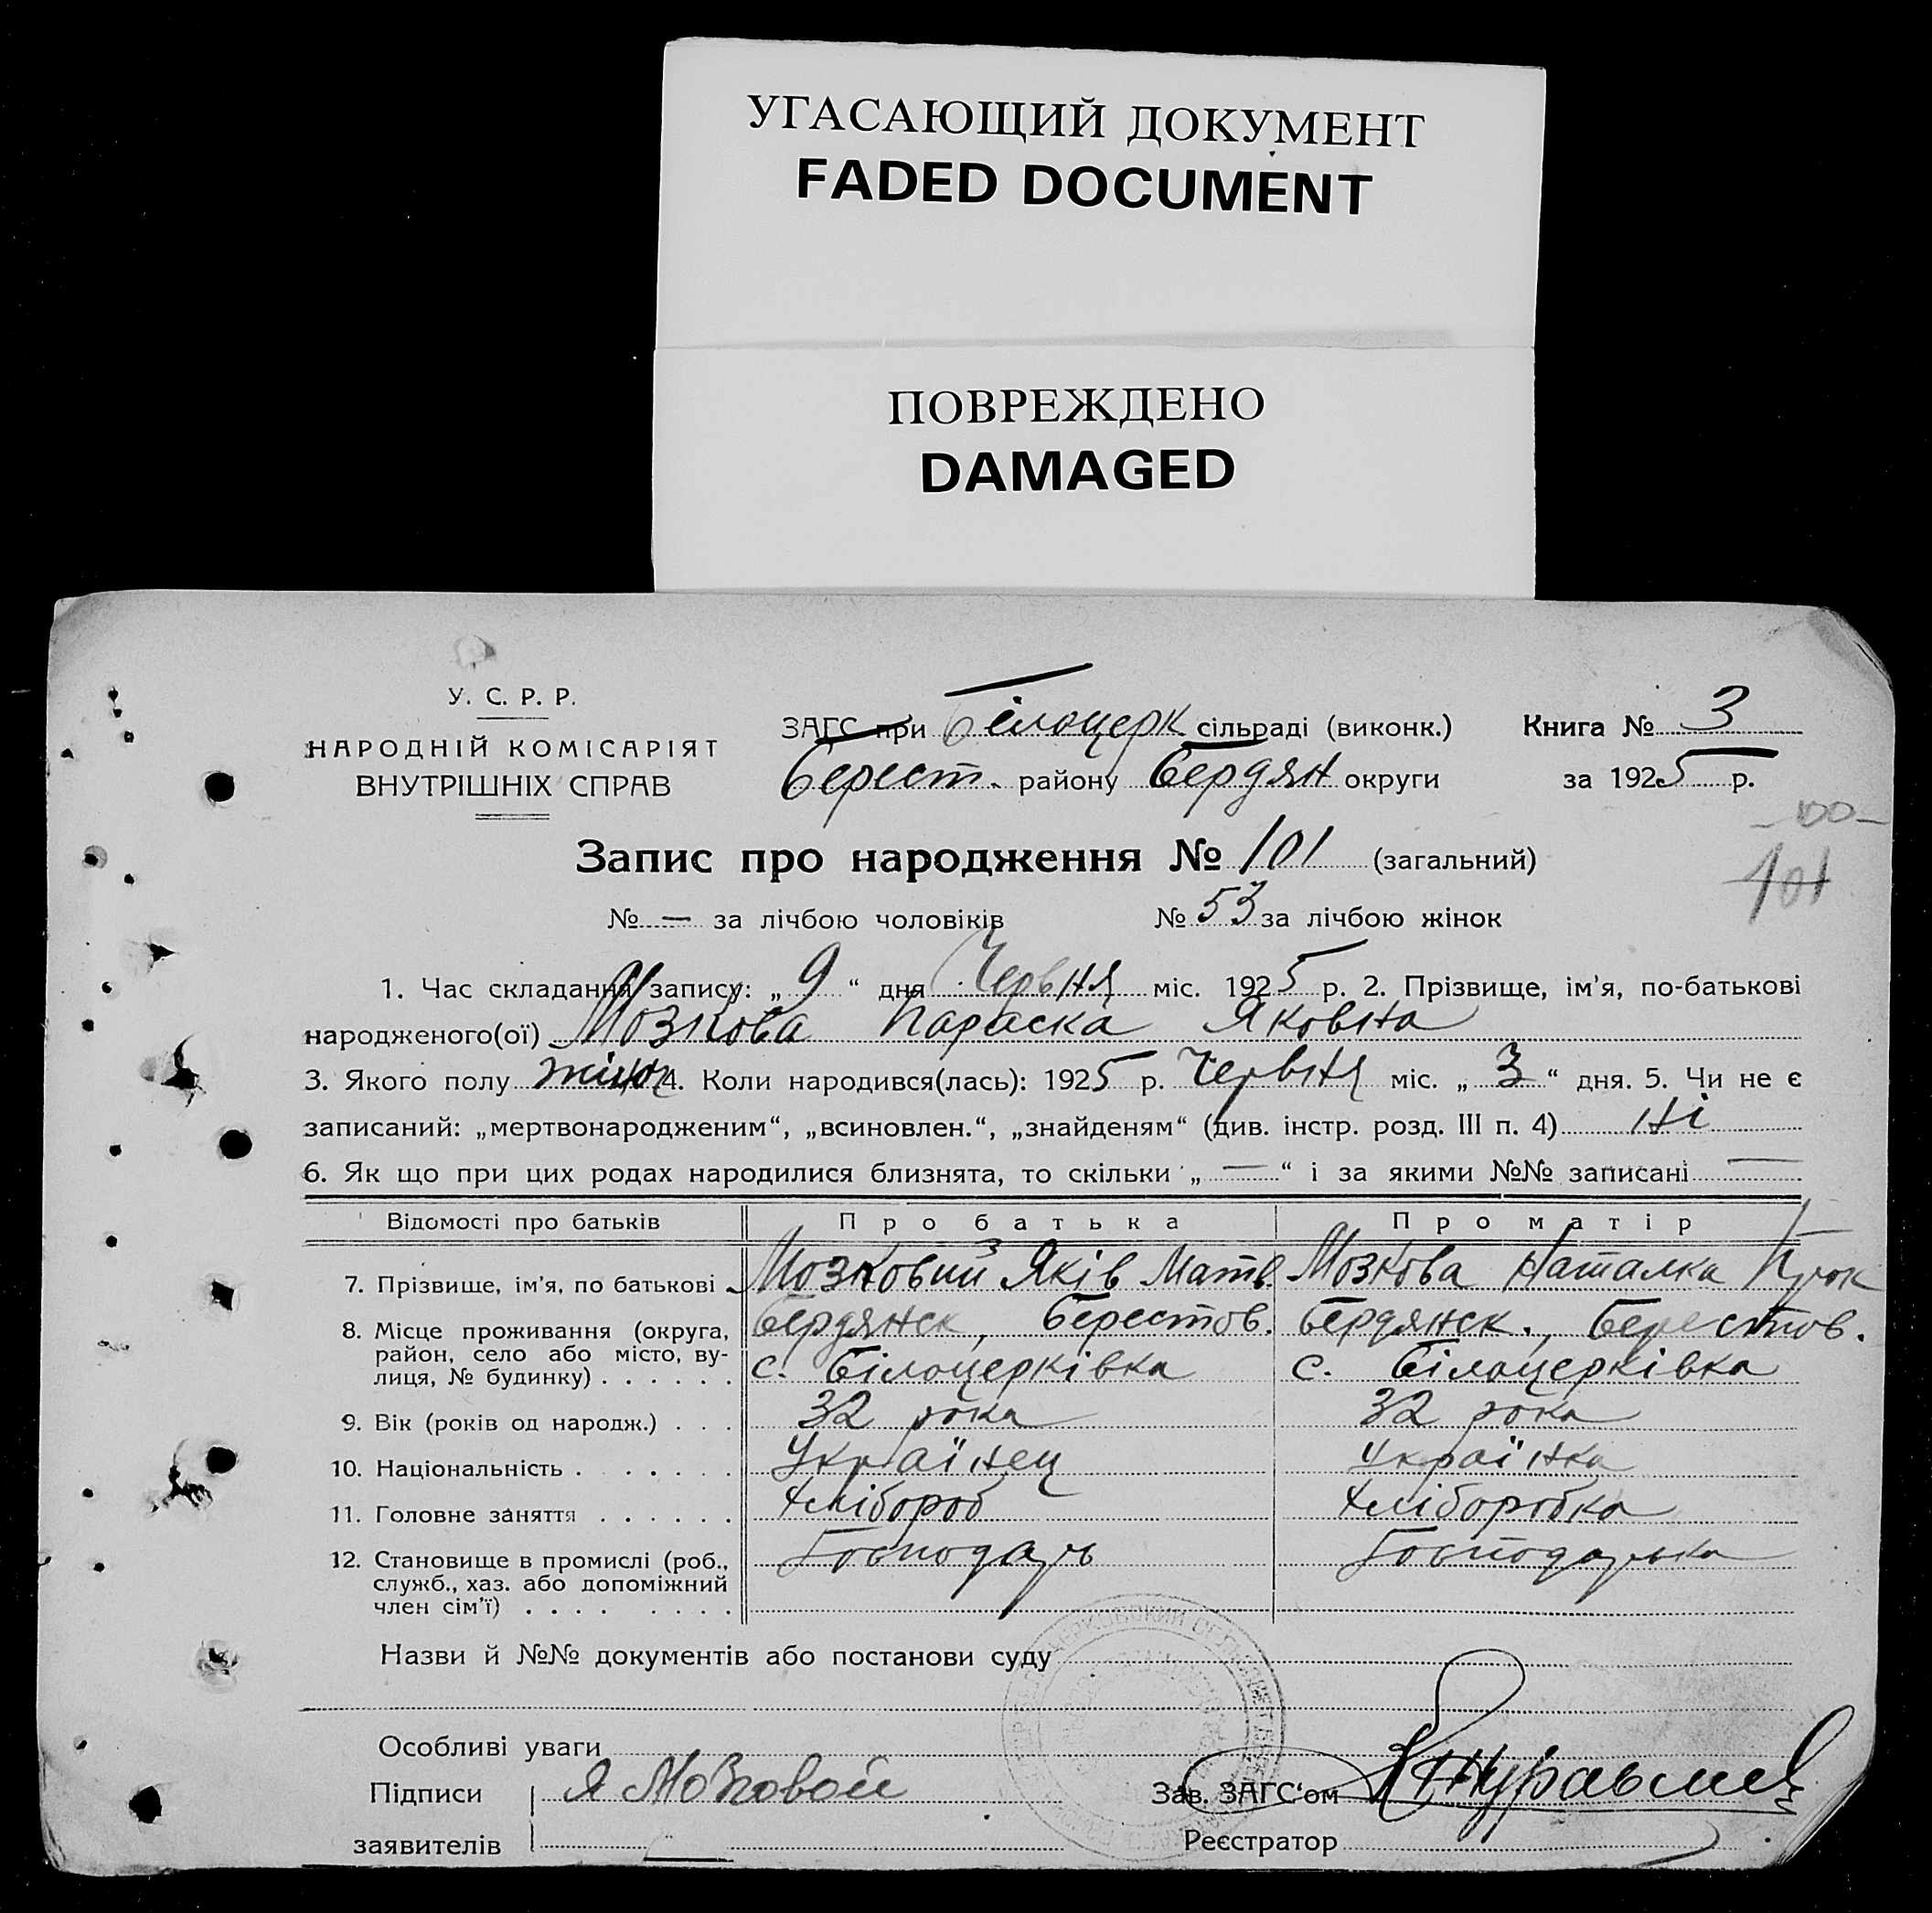 УГАСАЮЩИЙ ДОКУМЕНТ
FADED DOCUMENT
ПОВРЕЖДЕНО
DAMAGED
У. С. Р. Р.
НАРОДНІЙ КОМІСАРІЯТ
ВНУТРІШНІХ СПРАВ
ЗАГС при Білоцерк сільраді (виконк.) Книга № 3
Берест. району Бердян округи за 1925 р.
-100-
Запис про народження № 101 (загальний)
101
№ — за лічбою чоловіків № 53 за лічбою жінок
1. Час складання запису: „9“ дня Червня міс. 1925 р. 2. Прізвище, ім'я, по-батькові
народженого(ої) Мозкова Параска Яковна
3. Якого полу жіноч 4. Коли народився(лась): 1925 р. Червня міс. „3“ дня. 5. Чи не є
записаний: „мертвонародженим“, „всиновлен.“, „знайденям“ (див. інстр. розд. III п. 4) Ні
6. Як що при цих родах народилися близнята, то скільки „—“ і за якими №№ записані —
Відомості про батьків Про батька Про матір
7. Прізвище, ім'я, по батькові Мозковий Яків Матв. Мозкова Наталка Прок
8. Місце проживання (округа, Бердянск, Берестов. Бердянск., Берестов.
район, село або місто, ву-
лиця, № будинку) . . . . . . с. Білоцерківка с. Білоцерківка
9. Вік (років од народж.) . . . 32 рока 32 рока
10. Національність . . . . . . Українец Українка
11. Головне заняття . . . . . . Хлібороб Хліборобка
12. Становище в промислі (роб., Господарь Господарька
служб., хаз. або допоміжний
член сім'ї) . . . . . . . .
Назви й №№ документів або постанови суду
Особливі уваги
Підписи Я Мозковой Зав. ЗАГС'ом
заявителів Реєстратор